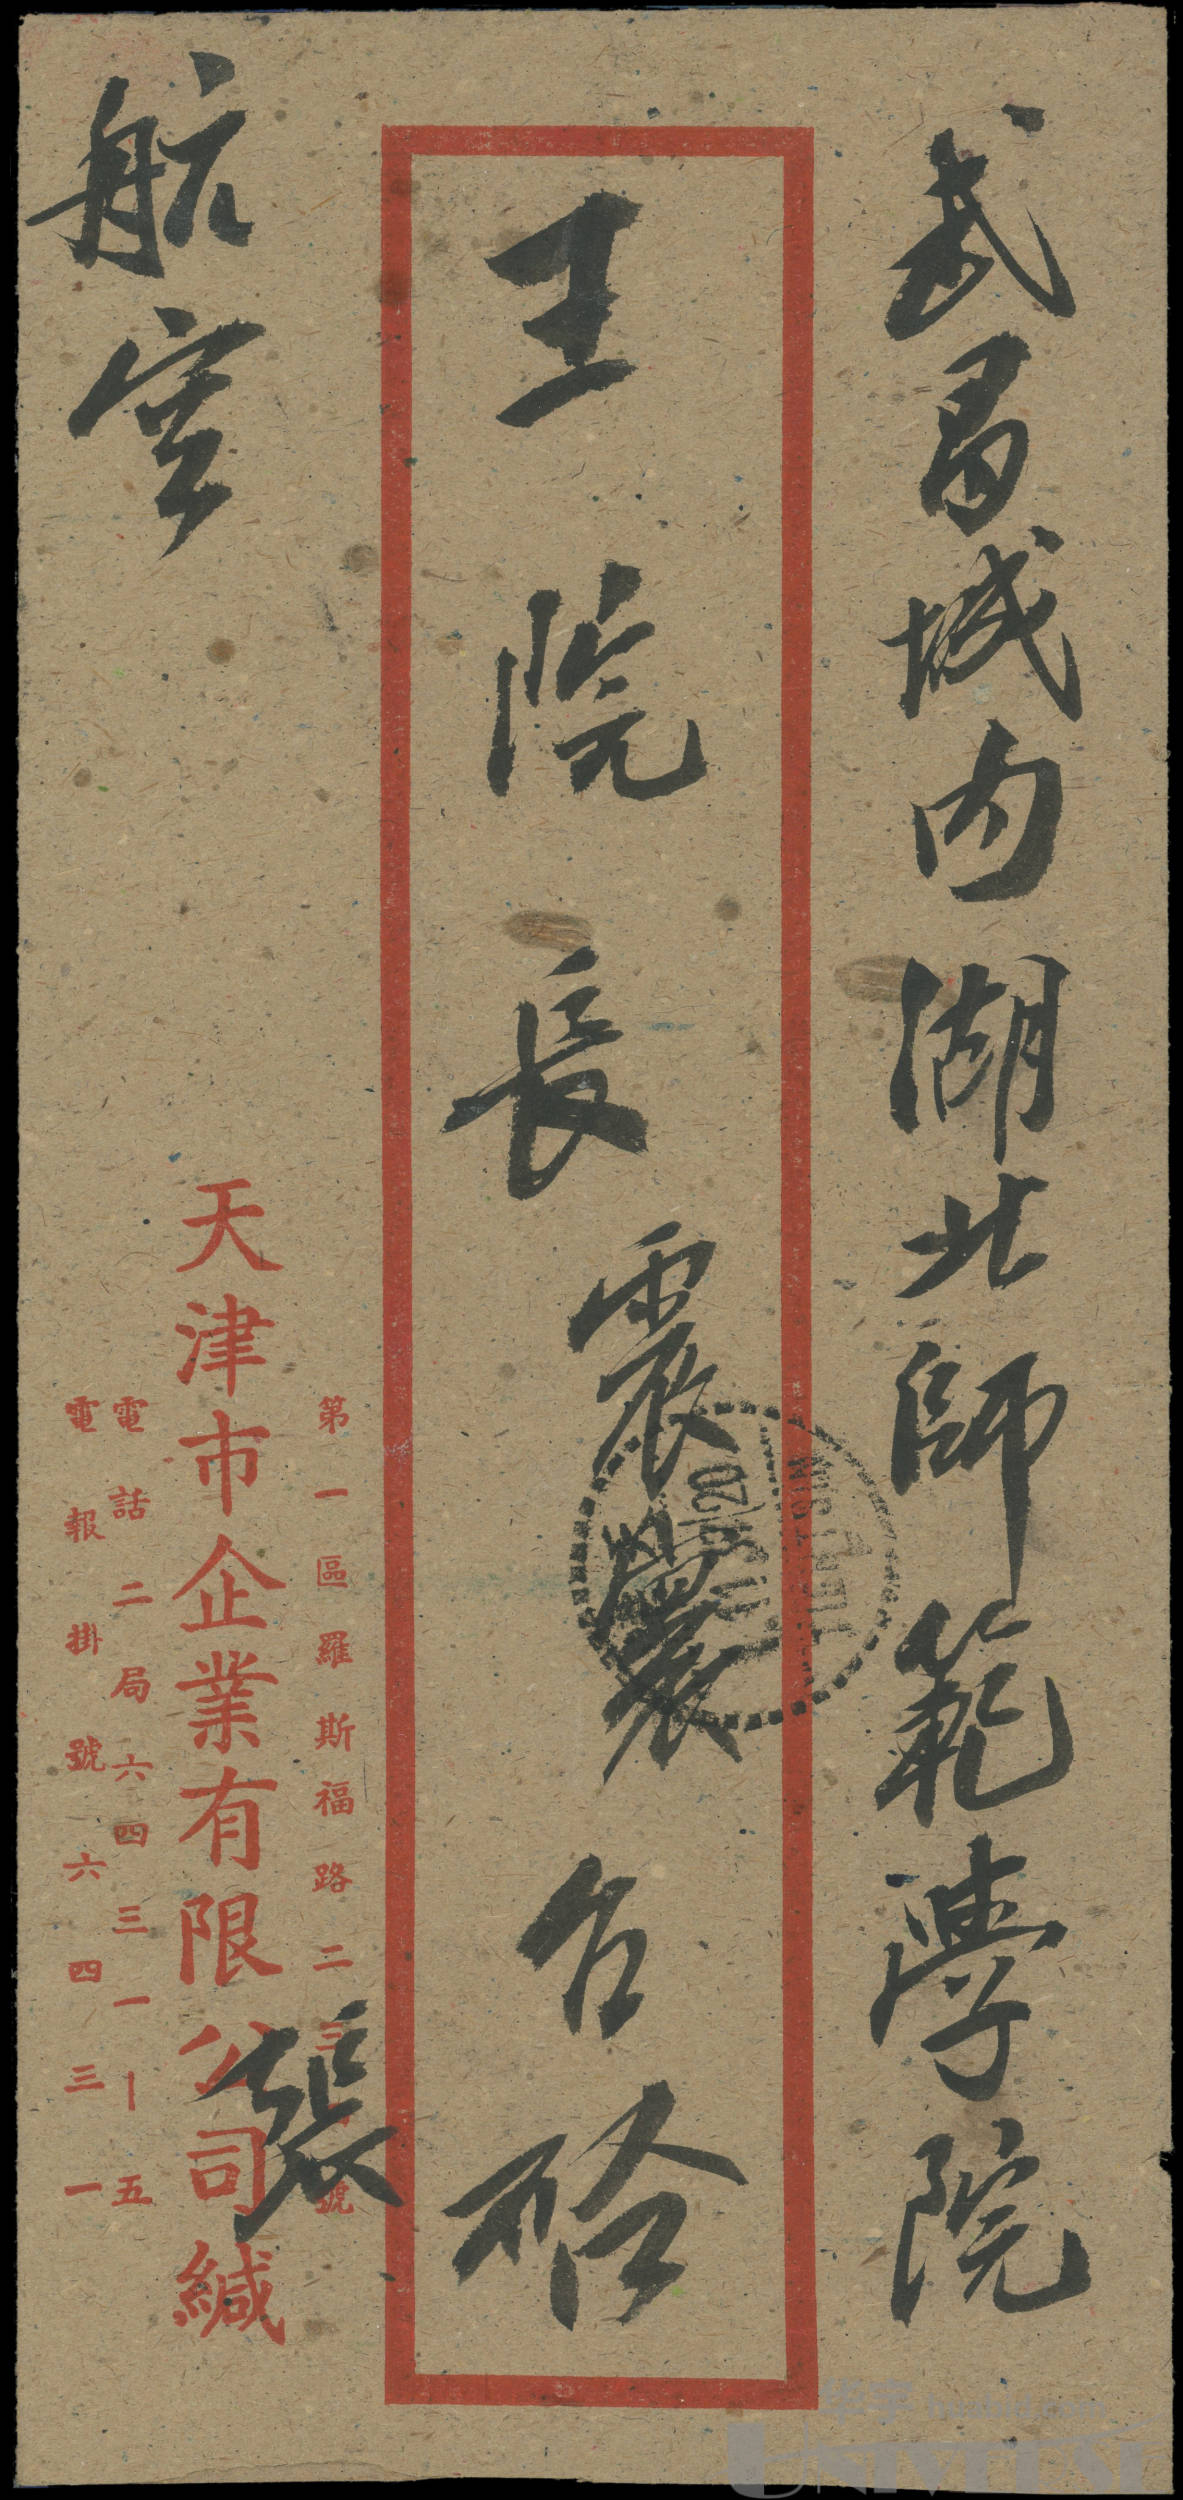 武昌城内湖北師範學院
王院長震寰台啓
航空
第一區羅斯福路二三 號
天津市企業有限公司緘
張
電話二局六四三一—五
電報掛號六四三一